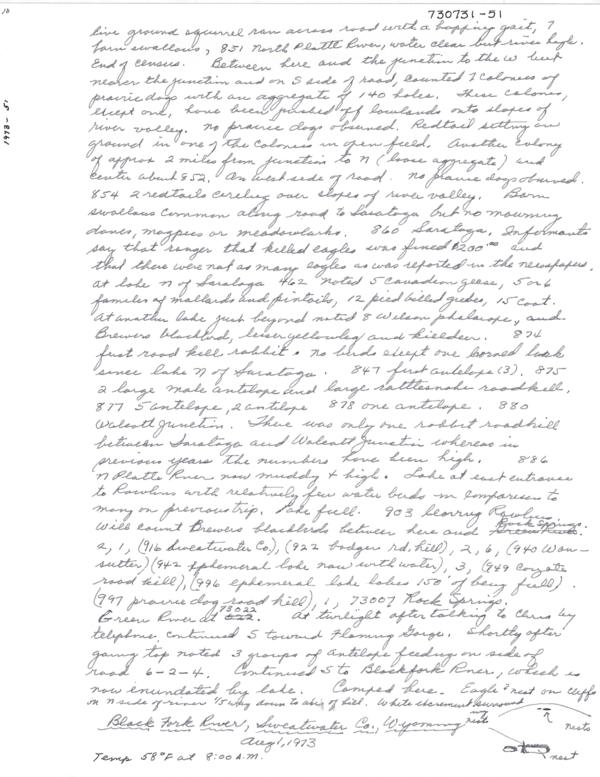 10
730731-51
1973-51
live ground squirrel ran across road with a hopping gait, 7
barn swallows, 851 North Platte River, water clear but river high.
End of census. Between here and the junction to the W but
nearer the junction and on S side of road, counted 7 colonies of
prairie dogs with an aggregate of 140 holes. These colonies,
except one, have been pushed off lowlands onto slopes of
river valley. No prairie dogs observed. Redtail sitting on
ground in one of the colonies in open field. Another colony
of approx 2 miles from junction to N (loose aggregate) and
center about 852. On west side of road. No prairie dogs observed.
854 2 redtails circling over slopes of river valley. Barn
swallows common along road to Saratoga but no mourning
doves, magpies or meadowlarks. 860 Saratoga, Informants
say that ranger that killed eagles was fined $200.00 and
that there were not as many eagles as was reported in the newspapers.
At lake N of Saratoga 462 noted 5 Canadian geese, 5 or 6
families of mallards and pintails, 12 pied billed grebes, 15 coot.
At another lake just beyond noted 8 Wilson phalarope, and
Brewers blackbird, lesser yellowleg and killdeer. 874
first road kill rabbit. No birds except one horned lark
since lake N of Saratoga. 847 first antelope (3). 875
2 large male antelope and large rattlesnake roadkill.
877 5 antelope, 2 antelope 878 one antelope. 880
Walcott Junction. There was only one rabbit roadkill
between Saratoga and Walcott Junction whereas in
previous years the numbers have been high. 886
N Platte River now muddy + high. Lake at east entrance
to Rawlins with relatively few water birds in comparison to
many on previous trip. Lake full. 903 leaving Rawlins.
Will count Brewers blackbirds between here and Rock Springs.
2, 1, (916 Sweatwater Co), (922 badger rd. kill), 2, 6, (940 Wam-
sutter) (942 ephemeral lake now with water), 3, (949 coyote
road kill), (996 ephemeral lake lakes 150' of being full).
(997 prairie dog road kill), 1, 73007 Rock Springs.
Green River at 73022. At twilight after talking to Chris by
telephone, continued S toward Flaming Gorge. Shortly after
going top noted 3 groups of antelope feeding on side of
road 6-2-4. Continued S to Blackfork River, which is
now enundated by lake. Camped here. Eagle? nest on cliffs
on N side of river 15 way down to abis of hill. White excrement surround
nest
nests
Black Fork River, Sweatwater Co., Wyoming
Aug 1, 1973
nest
Temp 58°F at 8:00 A.M.